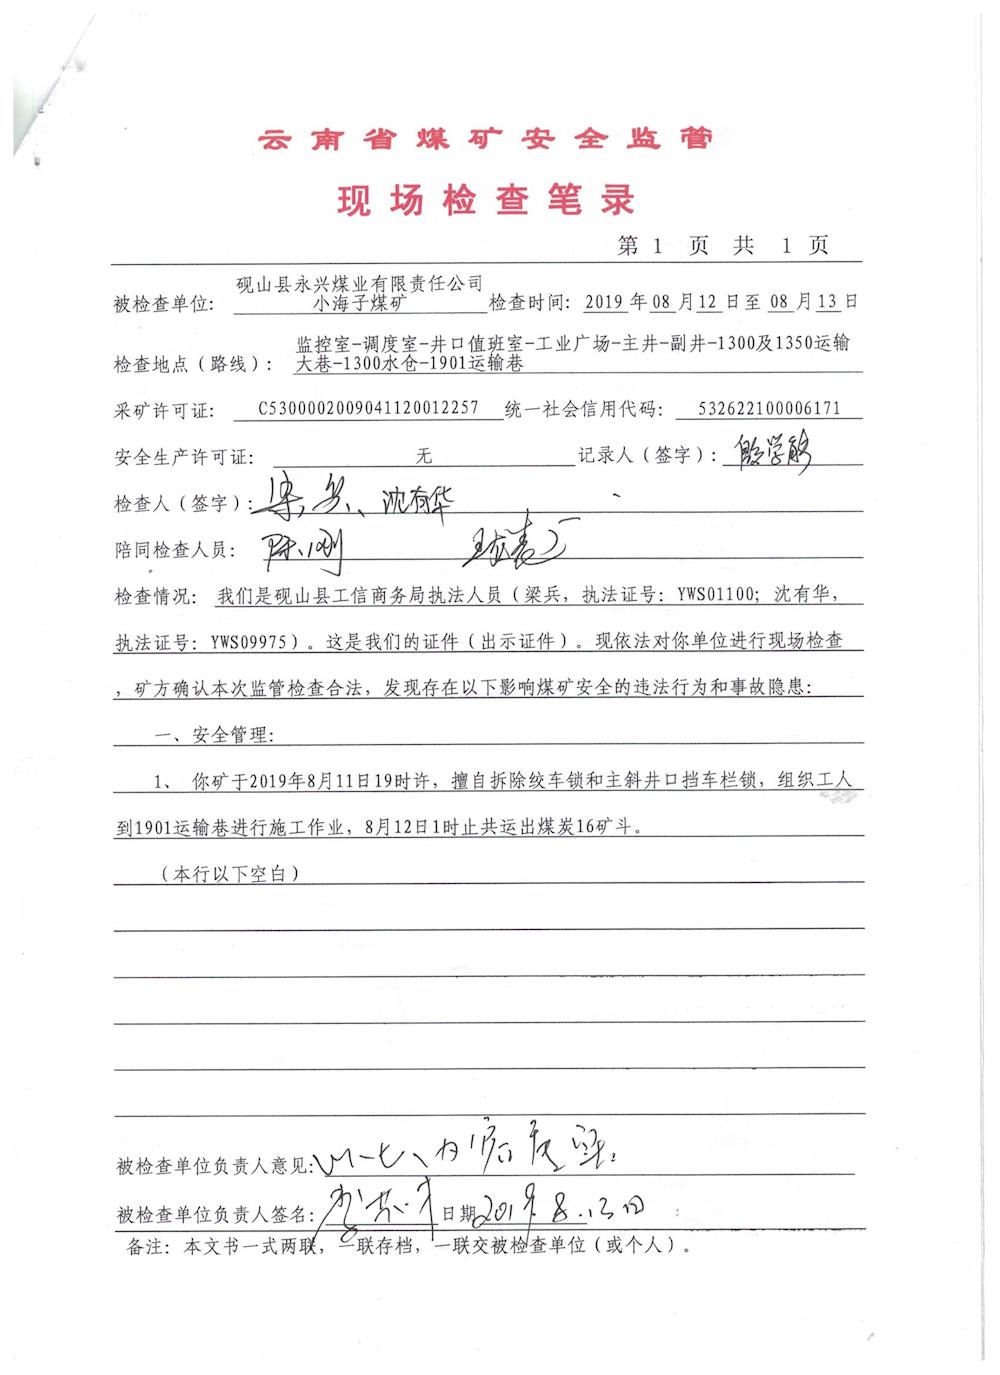 云南省煤矿安全监管
现场检查笔录
第 1 页 共 1 页
被检查单位: 砚山县永兴煤业有限责任公司小海子煤矿 检查时间: 2019 年 08 月 12 日至 08 月 13 日
检查地点（路线）: 监控室-调度室-井口值班室-工业广场-主井-副井-1300及1350运输
大巷-1300水仓-1901运输巷
采矿许可证: C5300002009041120012257 统一社会信用代码: 532622100006171
安全生产许可证: 无 记录人（签字）:
检查人（签字）: 梁兵、沈有华
陪同检查人员: 陈小刚
检查情况: 我们是砚山县工信商务局执法人员（梁兵，执法证号: YWS01100; 沈有华，
执法证号: YWS09975）。这是我们的证件（出示证件）。现依法对你单位进行现场检查
，矿方确认本次监管检查合法，发现存在以下影响煤矿安全的违法行为和事故隐患:
一、安全管理:
1、 你矿于2019年8月11日19时许，擅自拆除绞车锁和主斜井口挡车栏锁，组织工人
到1901运输巷进行施工作业，8月12日1时止共运出煤炭16矿斗。
（本行以下空白）
被检查单位负责人意见:
被检查单位负责人签名: 日期 2019.8.13日
备注: 本文书一式两联，一联存档，一联交被检查单位（或个人）。